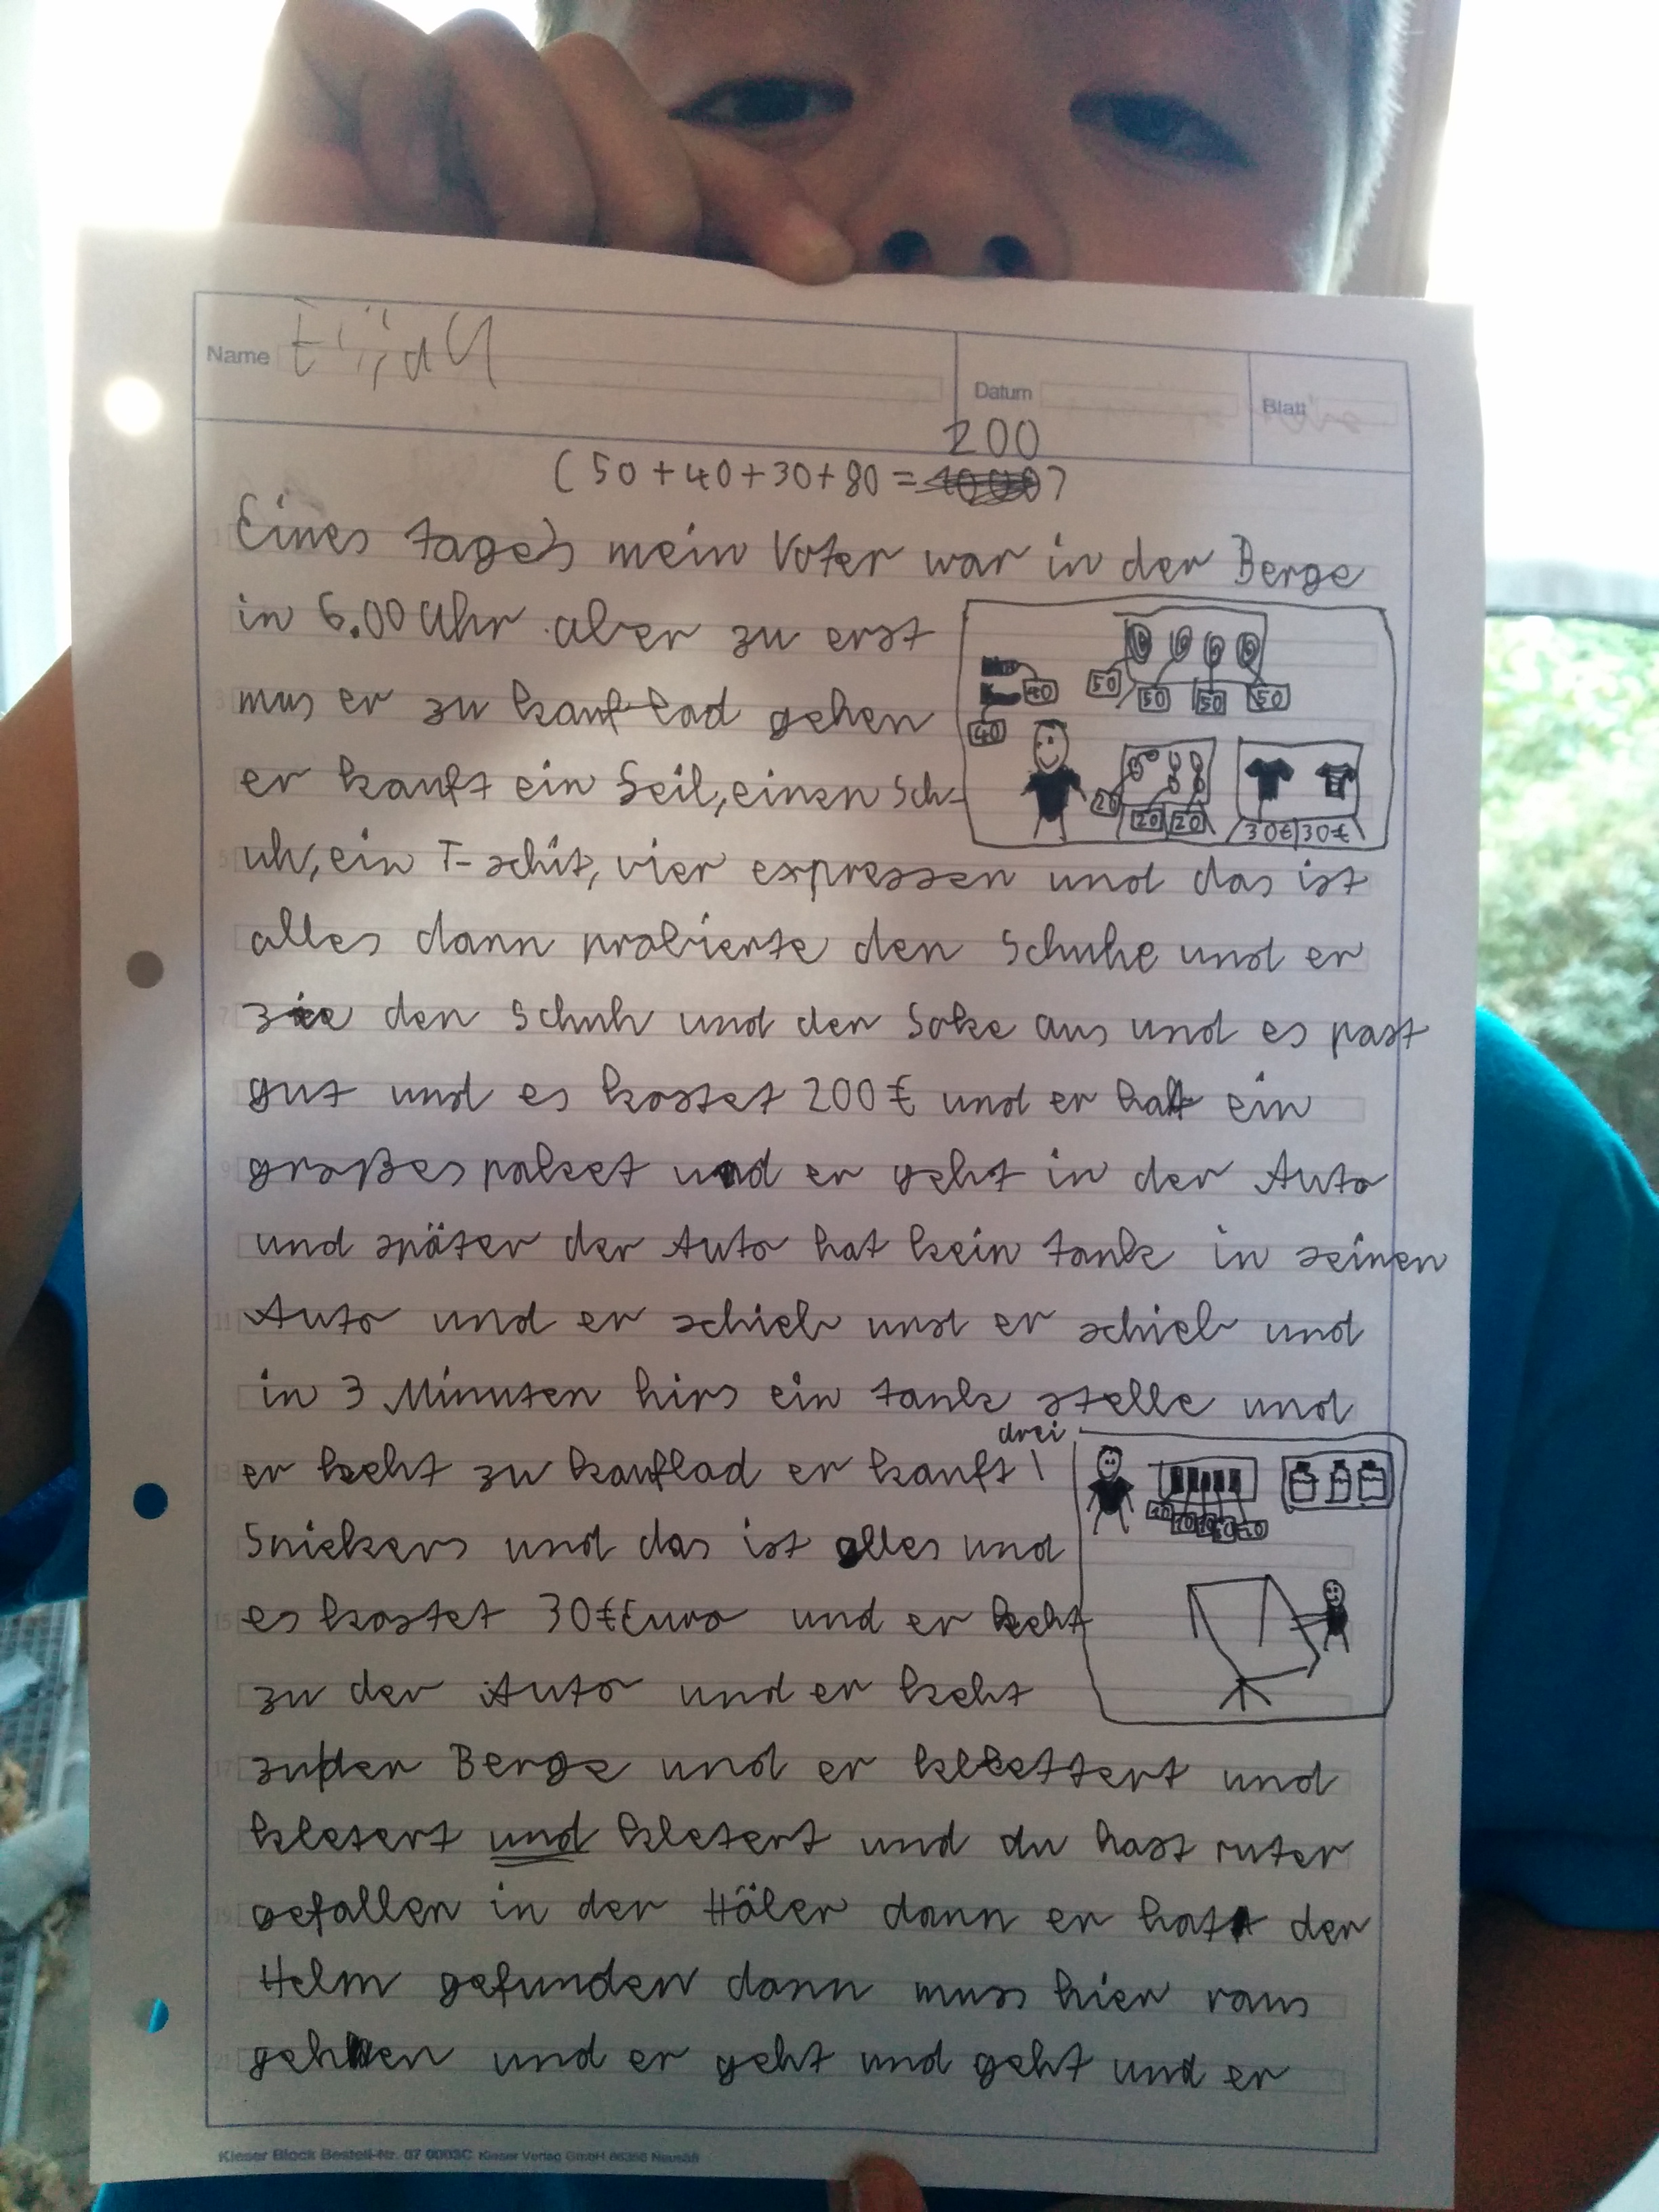 Name
Datum
Blatt
200
(50+40+30+80=
Eines tages mein Vater war in der Berge
in 6.00 Uhr aber zu erst
mus er zu kauflad gehen
er kauft ein Seil, einen Sch-
uh, ein T-schit, vier expressen und das ist
alles dann probierte den Schuhe und er
zie den Schuh und den Soke aus und es past
gut und es kostet 200€ und er hat ein
großes paket und er geht in der Auto
und später der Auto hat kein tank in seinen
Auto und er schieb und er schieb und
in 3 Minuten hirs ein tank stelle und
drei
er keht zu kauflad er kauft \
Snickers und das ist alles und
es kostet 30€ Euro und er keht
zu der Auto und er keht
zu der Berge und er klettert und
kletert und kletert und du hast ruter
gefallen in der Höler dann er hat der
Helm gefunden dann muss hier raus
gehen und er geht und geht und er
40
40
50
50
50
50
20
20
20
30€
30€
Kieser Block Bestell-Nr. 07 0003C Kieser Verlag GmbH 86356 Neusäß